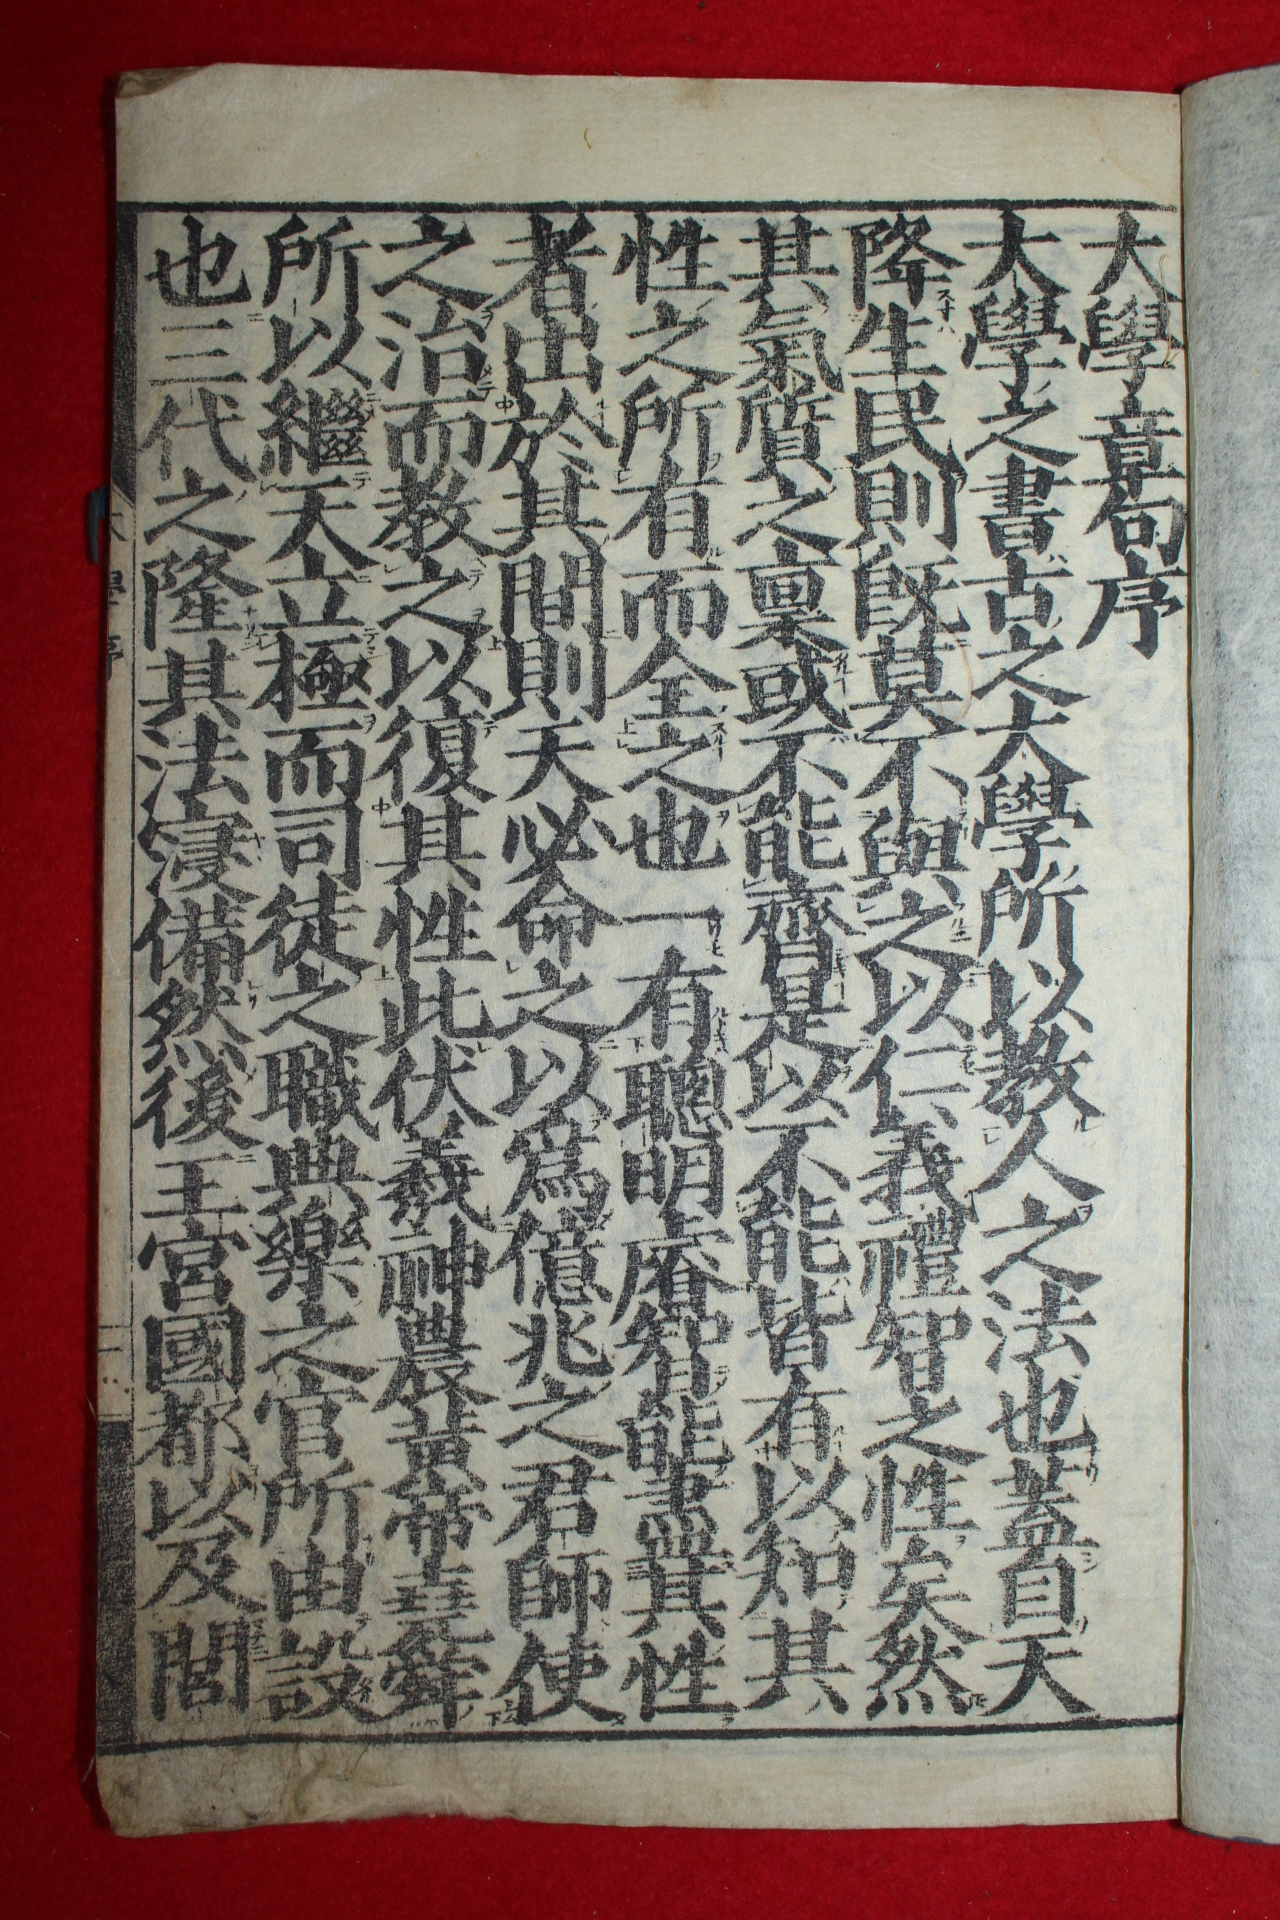 大學章句序
大學之書古之大學所以教人之法也蓋自天
降生民則既莫不與之以仁義禮智之性矣然
其氣質之稟或不能齊是以不能皆有以知其
性之所有而全之也一有聰明睿智能盡其性
者出於其間則天必命之以爲億兆之君師使
之治而教之以復其性此伏羲神農黃帝堯舜
所以繼天立極而司徒之職典樂之官所由設
也三代之隆其法寖備然後王宮國都以及閭
大學序
一